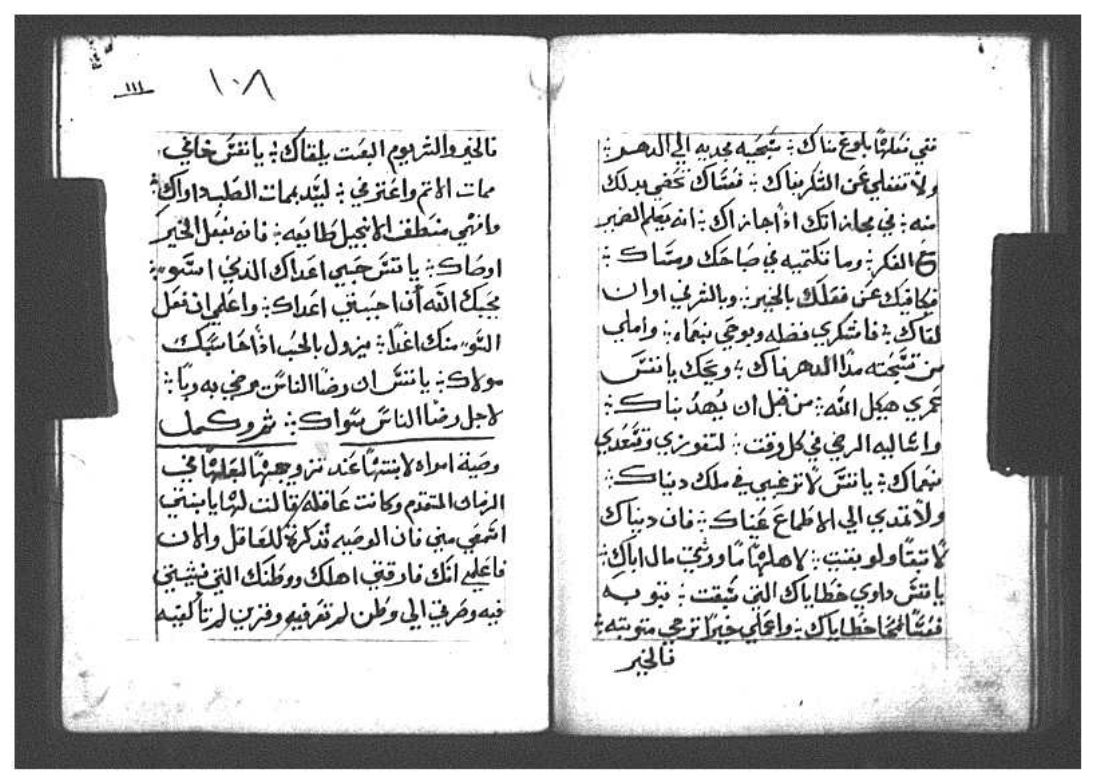 تفي نعلها بلوغ مناك ∴ سجيه مجديه الي الدهر ∴
ولا تغفلي عن التكر بفاك ∴ فعساك تحضي بدلك
منه ∴ في مجازاتك اذا جازاك ∴ انه يعلم الضمير
مع الفكر ∴ وما تكتميه في صباحك ومساك ∴
فكافيك عن فعلك بالخير ∴ وبالشر في اوان
لقاك ∴ فاشكري فضله وبوحي بنعماه ∴ واملي
من هداالدهر فاك ∴ ويحك يا نفس
عمري هيكل الله ∴ من قبل ان يهد بناك ∴
واساليه الرضي في كل وقت ∴ لتفوزي وتسعدي
بنعماك ∴ يا نفس لا ترغبي في ملك دنياك ∴
ولا تمدي الي الاطماع عيناك ∴ فان دنياك
لا تبقا ولو بقيت ∴ لاهلها ما ورثتي مال اباك ∴
يا نفس داوي خطاياك التي سبقت ∴ بتوبه
فعسا تمحا خطاياك ∴ واعملي خيرا ترجي مثوبته ∴
فالخير
١٠٨
١١١
فالخير والشر يوم البعث يلقاك ∴ يا نفس خافي
ممات الاثم واعترفي ∴
وانهي منطف الانجيل طايعه ∴ فانه بفعل الخير
اوصاك ∴ يا نفس حبي اعداك الذي اسو ∴
يحبك الله أن احببتي اعداك ∴ واعلمي ان فعل
السو منك اغدا ∴ يزول بالحب اذا خا سبك
مولاك ∴ يا نفس ان رضا الناس يرضي به ربا ∴
لاجل رضا الناس سواك ∴ تم وكمل
وصية امراه لابنتها عند تزويجها لبعلها في
الزمان المتقدم وكانت عاقله قالت لها يا بنتي
اسمعي مني فان الوصيه تذكرة للعاقل والان
فاعلمي انك فارقتي اهلك ووطنك التي نشيتي
فيه وصرتي الي وطن لم تعرفيه وقرين لم تألفيه